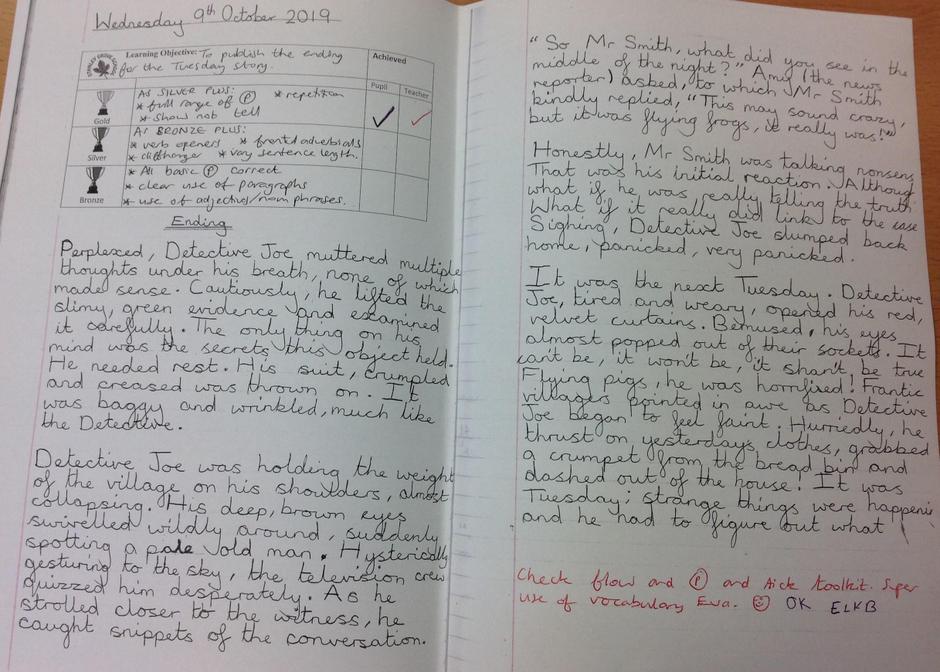 Wednesday 9th October 2019
Learning Objective: To publish the ending
for the Tuesday story.
Achieved
Pupil
Teacher
Gold
As SILVER PLUS:
* full range of P * repetition
* show not tell
Silver
As BRONZE PLUS:
* verb openers * fronted adverbials
* cliffhanger * vary sentence length.
Bronze
* All basic P correct
* clear use of paragraphs
* use of adjective/noun phrases.
Ending
Perplexed, Detective Joe muttered multiple
thoughts under his breath, none of which
made sense. Cautiously, he lifted the
slimy, green evidence and examined
it carefully. The only thing on his
mind was the secrets this object held.
He needed rest. His suit, crumpled
and creased was thrown on. It
was baggy and wrinkled, much like
the Detective.
Detective Joe was holding the weight
of the village on his shoulders, almost
collapsing. His deep, brown eyes
swivelled wildly around, suddenly
spotting a pale old man. Hysterically
gesturing to the sky, the television crew
quizzed him desperately. As he
strolled closer to the witness, he
caught snippets of the conversation.
"So Mr Smith, what did you see in the
middle of the night?" Amy (the news
reporter) asked, to which Mr Smith
kindly replied, "This may sound crazy,
but it was flying frogs, it really was!"
Honestly, Mr Smith was talking nonsens
That was his initial reaction. Althoug
what if he was really telling the truth
What if it really did link to the case
Sighing, Detective Joe slumped back
home, panicked, very panicked.
It was the next Tuesday. Detective
Joe, tired and weary, opened his red,
velvet curtains. Bemused, his eyes
almost popped out of their sockets. It
can't be, it won't be, it shan't, be true
Flying pigs, he was horrified! Frantic
villages pointed in awe as Detective
Joe began to feel faint. Hurriedly, he
thrust on yesterdays clothes, grabbed
a crumpet from the bread bin and
dashed out of the house! It was
Tuesday; strange things were happeni
and he had to figure out what
Check flow and P and tick toolkit. Super
use of vocabulary Eva. OK ELKB